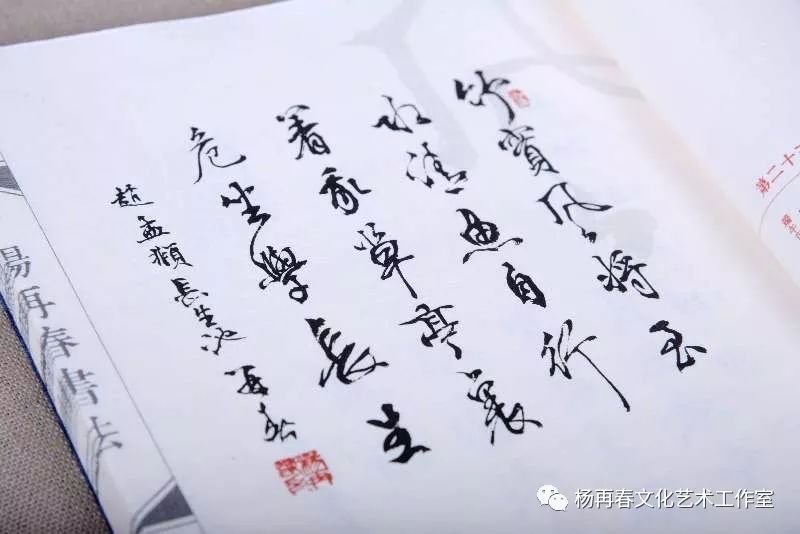 竹實鳳將至
水清魚自行
着我草亭裏
危坐學長生
趙孟頫長生池 再春
楊再春書法
第二十
杨再春文化艺术工作室